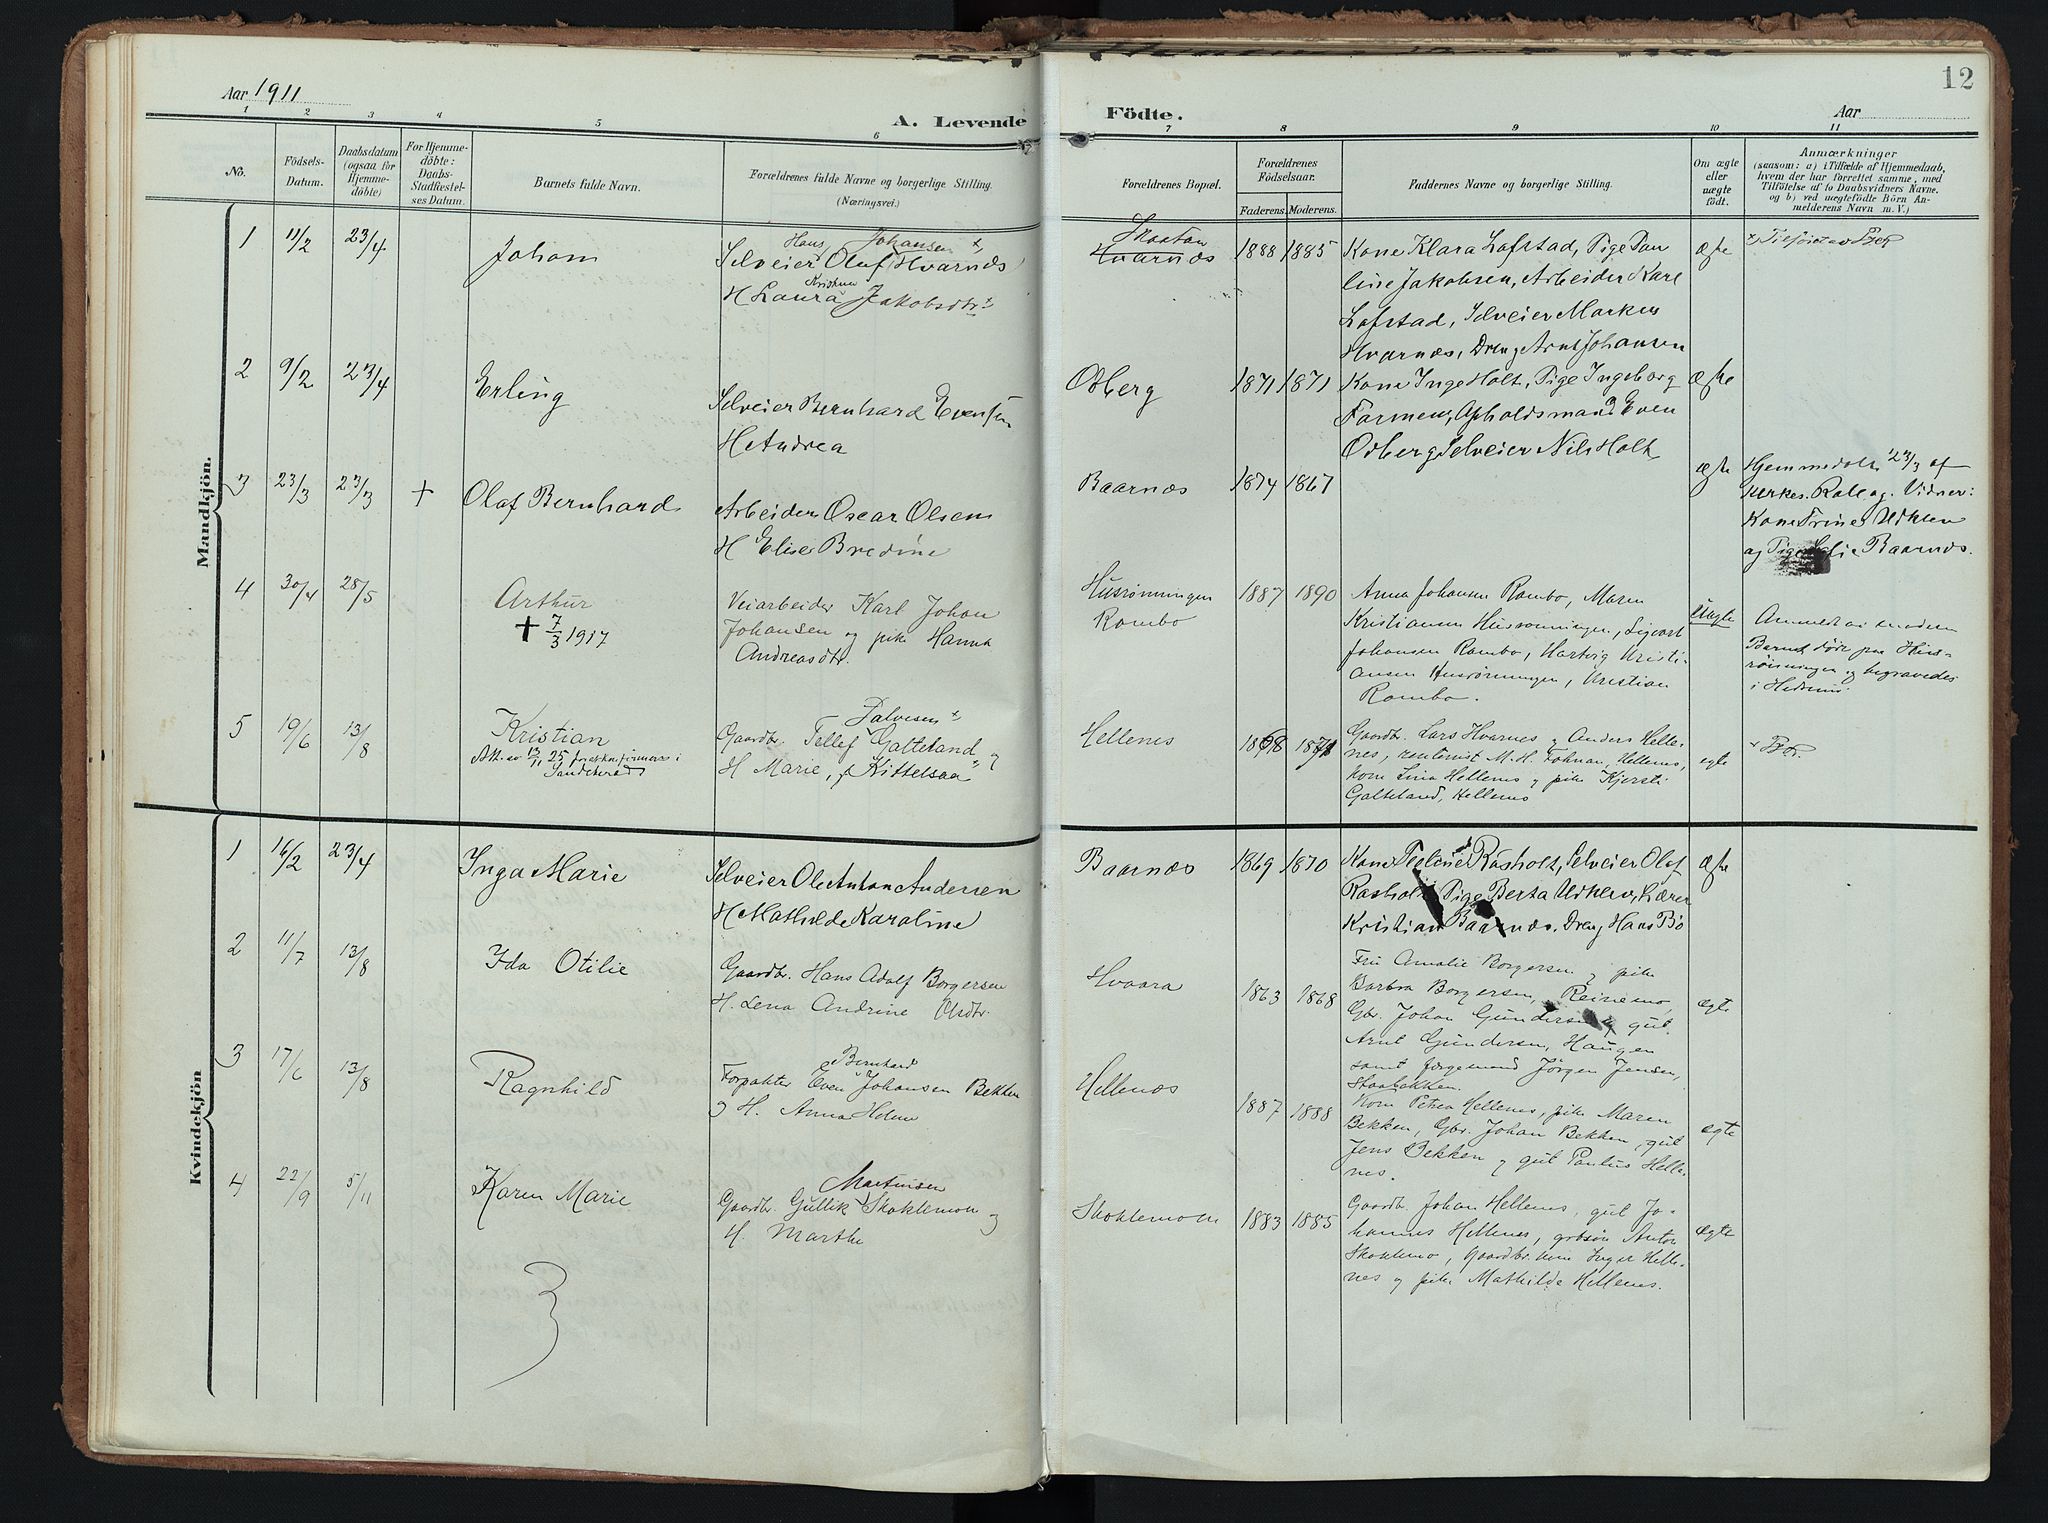 12
Aar 1911
Aar
A. Levende Födte.
1 2 3 4 5 6 7 8 9 10 11
No.
Födsels-
Datum.
Daabsdatum
(ogsaa for
Hjemme-
döbte)
For Hjemme-
döbte:
Daabs-
Stadfæstel-
ses Datum.
Barnets fulde Navn.
Forældrenes fulde Navne og borgerlige Stilling.
(Næringsvei.)
Forældrenes Bopæl.
Forældrenes
Födselsaar.
Faderens. Moderens.
Faddernes Navne og borgerlige Stilling.
Om ægte
eller
uægte
födt.
Anmærkninger
(saasom: a) i Tilfælde af Hjemmedaab,
hvem der har forrettet samme, med
Tilföielse af to Daabsvidners Navne.
og b) ved uægtefödte Börn An-
melderens Navn m. V.)
Mandkjön.
1 11/2 23/4 Johan
Hans Johansen x
Selveier Olaf Hvarnæs
Kristine
H Laura Jakobsdtr x
Skaatan
Hvarnæs
1888 1885
Kone Klara Lofstad, Pige Pau
line Jakobsen, Arbeider Karl
Lofstad, Selveier Markus
Hvarnæs, Dreng Arnt Johansen
ægte
x Tilföiet av Pzer
2 9/2 23/4 Erling
Selveier Bernhard Evensen
H Andrea
Odberg
1871 1871
Kone Inge Holt, Pige Ingeborg
Farmen, Opholdsmand Even
Odberg Selveier Nils Holt
ægte
3 23/3 23/3 + Olaf Bernhard
Arbeider Oscar Olsen
H Elise Bredine
Baarnæs
1874 1867
ægte
Hjemmedöbt 23/3 af
Kirkes. Vidner:
Kone Trine Udklev
og Pige Baarnæs.
4 30/4 28/5 Arthur
+ 7/3 1917
Veiarbeider Karl Johan
Johansen og pike Hanna
Andreasdtr.
Husrønningen
Rombo
1887 1890
Anna Johansen Rombo, Maren
Kristiansen Husrønningen, Sigvart
Johansen Rombo, Hartvig Kristi-
ansen Husrønningen, Kristian
Rombo.
Uægte
Anmeldt av moderen
Barnet døde paa Hus-
rønningen og begravedes
i Hedrum
5 19/6 13/8 Kristian
Att. av 13/11 25 for konfirmasj i
Sandeherad
Salvesen x
Gaardbr. Tellef Galteland og
H Marie, f. Kittelsaa x
Hellenes
1868 1871
Gaardbr. Lars Hvarnes og Anders Helle-
nes, rentenist M. H. Fohnan, Hellenes,
kone Lina Hellenes og pike Kjersti
Galteland, Hellenes
egte
x Pzr.
Kvindekjön
1 16/2 23/4 Inga Marie
Selveier Ole Anton Andersen
H Mathilde Karoline
Baarnæs
1869 1870
Kone Rasholt, Selveier Olaf
Rasholt Pige Berta Udklev, Lærer
Kristian Baarnæs, Dreng Hans Bö
ægte
2 11/7 13/8 Ida Otilie
Gaardbr. Hans Adolf Borgersen
H. Lena Andrine Olsdtr.
Hvaara
1863 1868
Fru Amalie Borgersen og pike
Barbra Borgersen, Reinemo,
Gbr. Johan Gundersen og gut
Arnt Gundersen, Haugen
samt færgemand Jørgen Jensen,
Staabekken.
ægte
3 17/6 13/8 Ragnhild
Bernhard
Forpakter Even Johansen Bekken
og H. Anna Helene
Hellenæs
1887 1888
Kone Petra Hellenes, pike Maren
Bekken, Gbr. Johan Bekken, gut
Jens Bekken og gut Paulus Helle-
nes.
ægte
4 22/9 5/11 Karen Marie
Martinsen
Gaardbr. Gullik Skoklemoen og
H. Marthe
Skoklemoen
1883 1885
Gaardbr. Johan Hellenes, gut Jo-
hannes Hellenes, gbrsøn Anton
Skoklemo, Gaardbr. kone Inger Helle-
nes og pike Mathilde Hellenes.
ægte